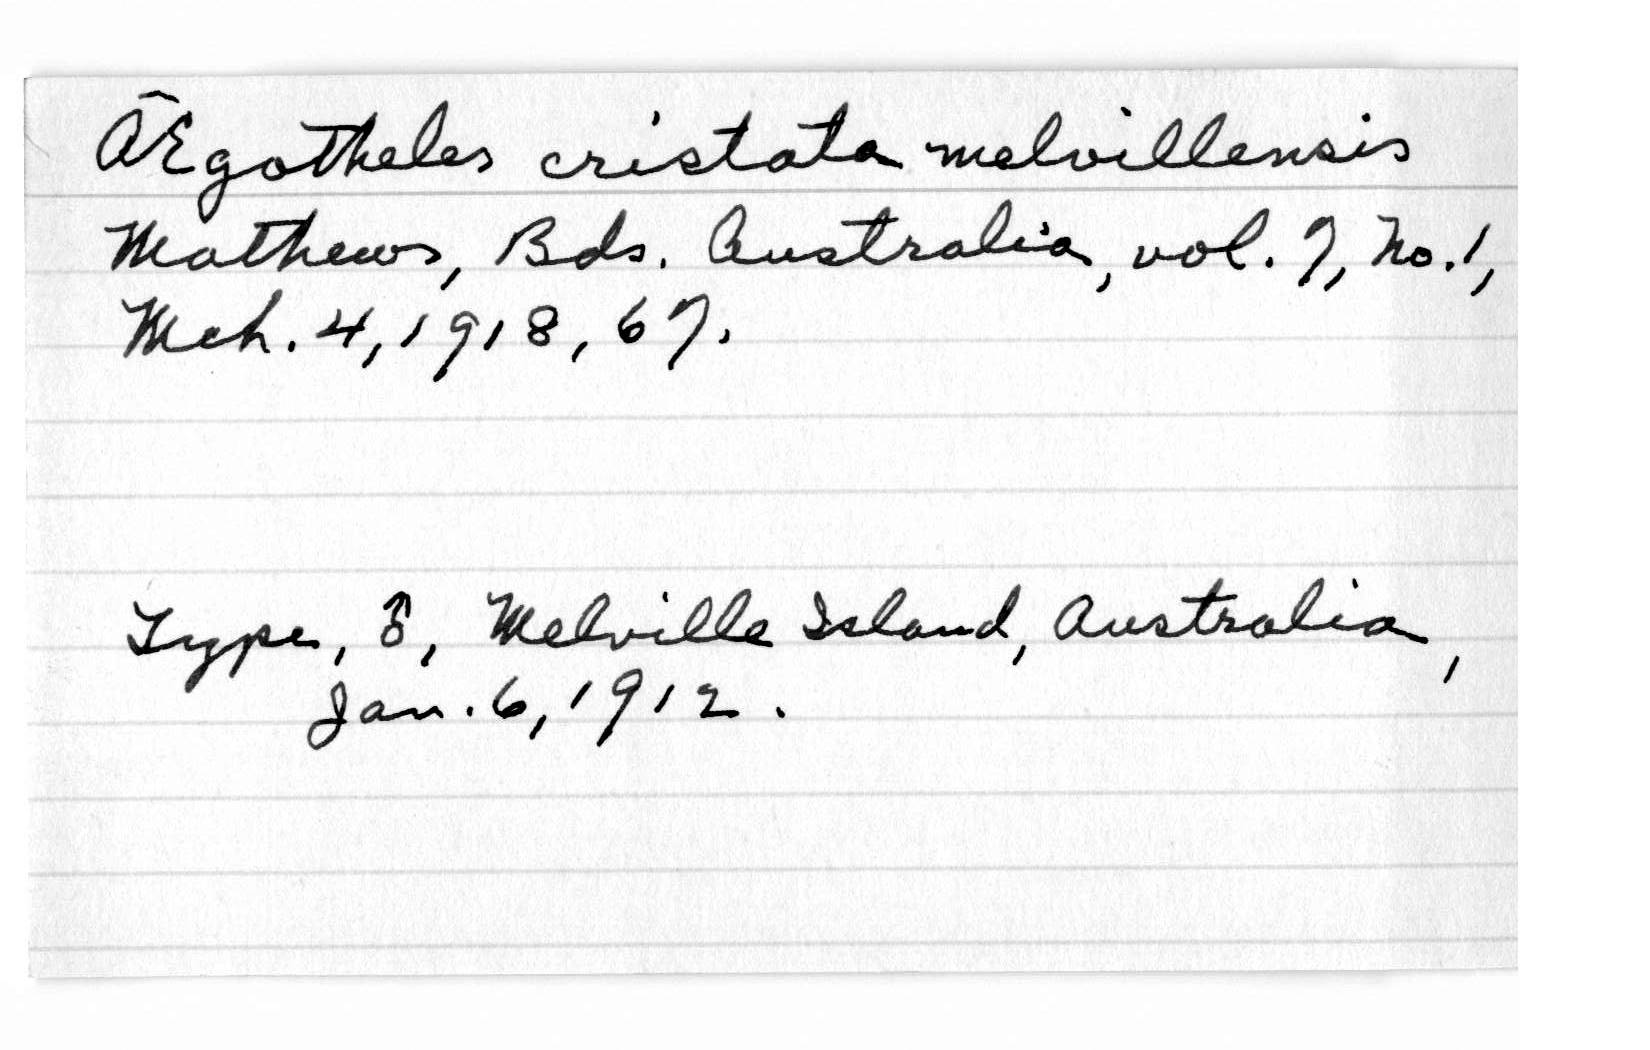 Ægotheles cristata melvillensis
Mathews, Bds. Australia, vol. 7, No. 1,
Mch. 4, 1918, 67.
Type, ♂, Melville Island, Australia,
Jan. 6, 1912.